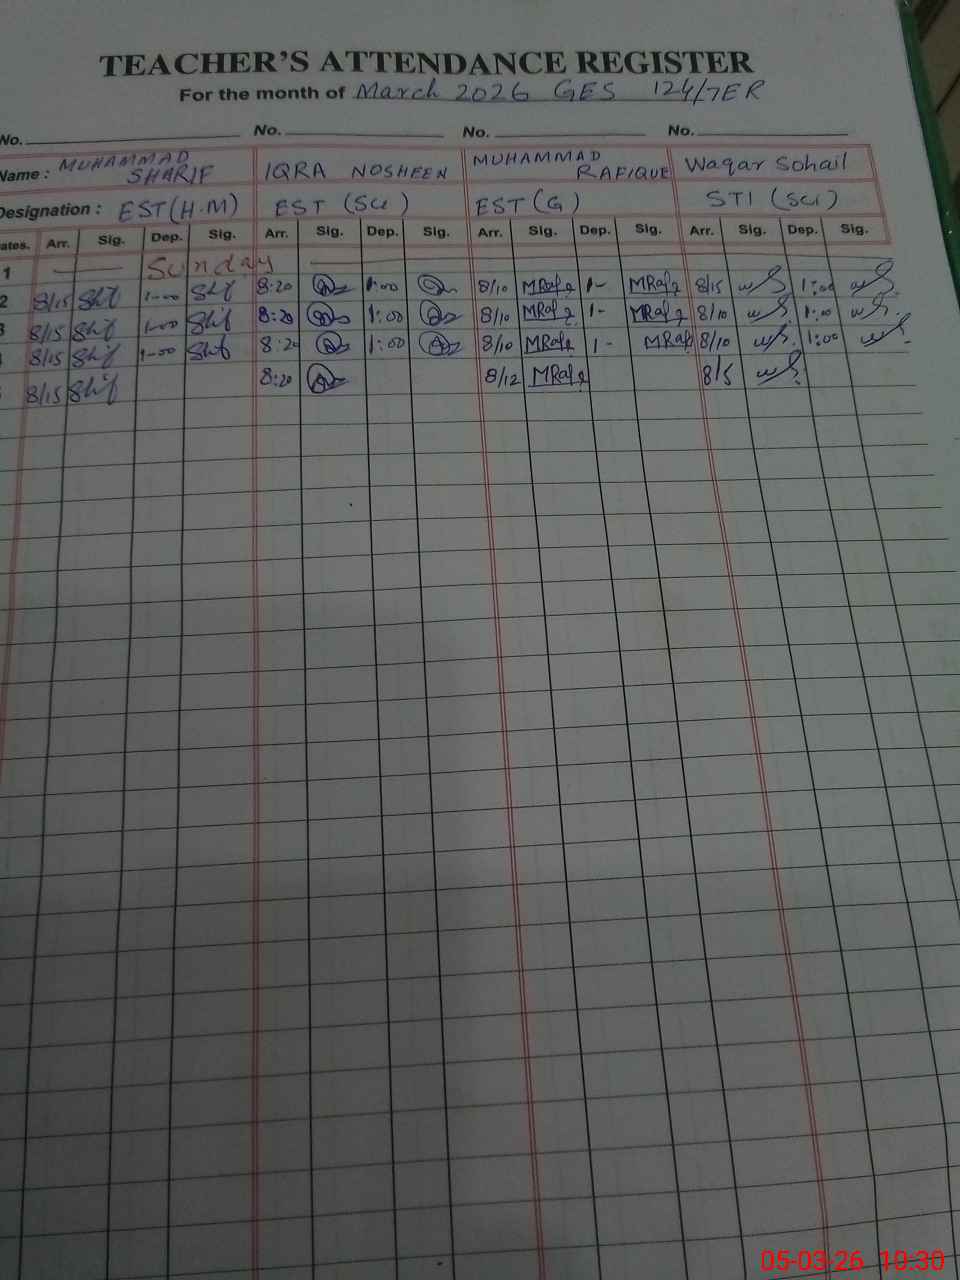 TEACHER'S ATTENDANCE REGISTER
For the month of March 2026 GES 124/7ER
No. No. No. No.
Name : MUHAMMAD SHARIF IQRA NOSHEEN MUHAMMAD RAFIQUE Waqar Sohail
Designation : EST (H.M) EST (Sci) EST (G) STI (Sci)
ates. Arr. Sig. Dep. Sig. Arr. Sig. Dep. Sig. Arr. Sig. Dep. Sig. Arr. Sig. Dep. Sig.
1 Sunday
2 8/15 1-00 8:20 1:00 8/10 MRafq 1- MRafq 8/15 1:00
3 8/15 1-00 8:20 1:00 8/10 MRafq 1- MRafq 8/10 1:00
8/15 1-00 8:20 1:00 8/10 MRafq 1- MRaf 8/10 1:00
8/15 8:20 8/12 MRafq 8/5
05-03-26 10:30